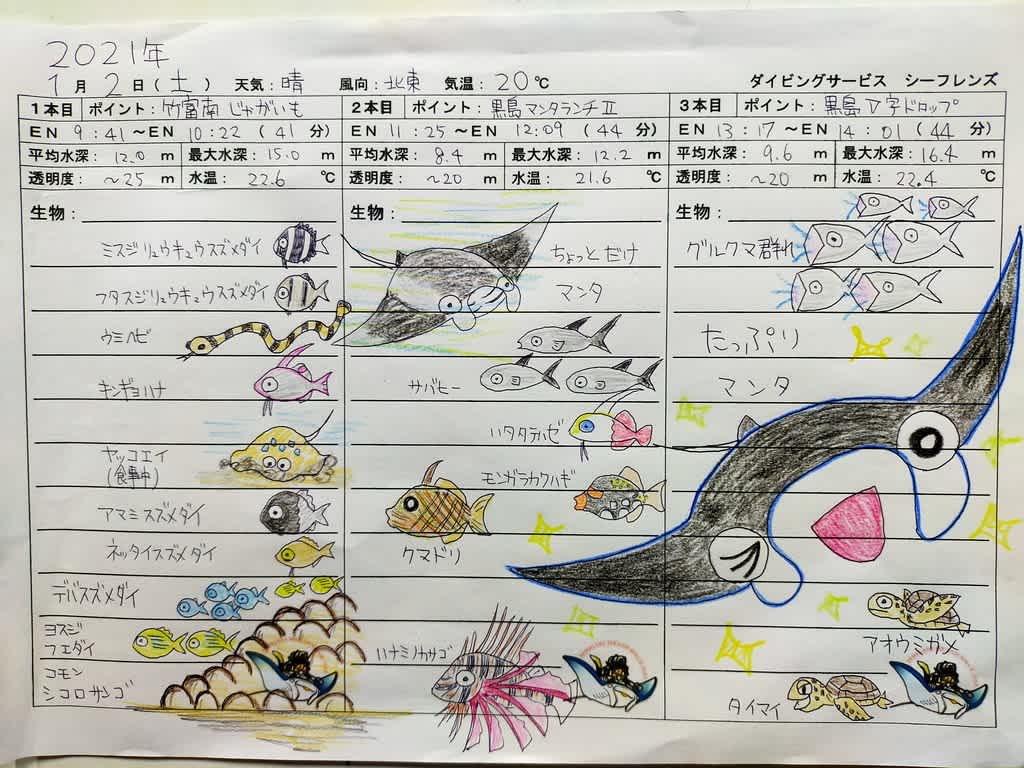 2021年
1月2日(土) 天気:晴 風向:北東 気温:20℃ ダイビングサービス シーフレンズ
1本目 ポイント:竹富南 じゃがいも
EN 9:41~EN 10:22(41分)
平均水深:12.0m 最大水深:15.0m
透明度:~25m 水温:22.6℃
生物:
ミスジリュウキュウスズメダイ
フタスジリュウキュウスズメダイ
ウミヘビ
キンギョハナ
ヤッコエイ
(食事中)
アマミスズメダイ
ネッタイスズメダイ
デバスズメダイ
ヨスジ
フエダイ
コモン
シコロサンゴ
2本目 ポイント:黒島マンタランチⅡ
EN 11:25~EN 12:09(44分)
平均水深:8.4m 最大水深:12.2m
透明度:~20m 水温:21.6℃
生物:
ちょっとだけ
マンタ
サバヒー
ハタタテハゼ
モンガラカワハギ
クマドリ
ハナミノカサゴ
3本目 ポイント:黒島V字ドロップ
EN 13:17~EN 14:01(44分)
平均水深:9.6m 最大水深:16.4m
透明度:~20m 水温:22.4℃
生物:
グルクマ群れ
たっぷり
マンタ
アオウミガメ
タイマイ